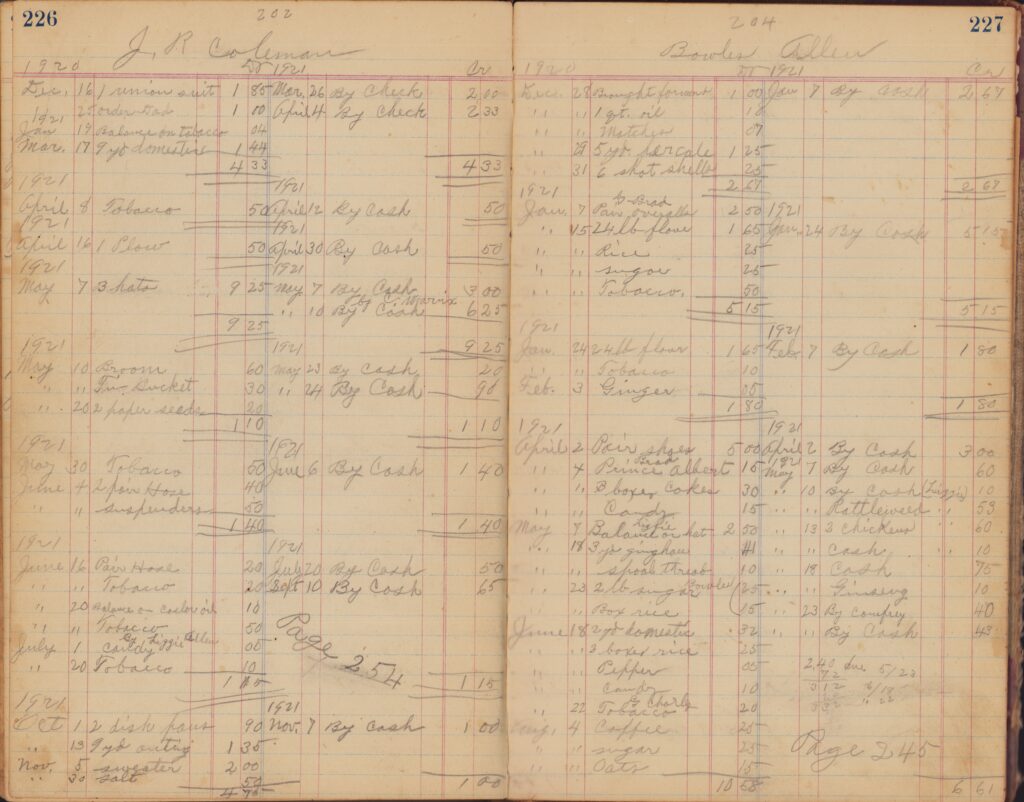 226
202
J. R Coleman
1920 Dr 1921 Cr
Dec. 16 1 union suit 1 85 Mar. 26 By Check 2 00
1921 25 order 1 00 April 4 By Check 2 33
Jan 19 Balance on tobacco 04
Mar. 17 9 yd domestic 1 44
4 33 4 33
1921 1921
April 8 Tobacco 50 April 12 By Cash 50
1921 1921
April 16 1 Plow 50 April 30 By Cash 50
1921 1921
May 7 3 hats 9 25 May 7 By Cash 3 00
by C.
" 10 By Cash 6 25
9 25
9 25
1921 1921
May 10 Broom 60 May 23 By Cash 20
" " Tin Bucket 30 " 24 By Cash 90
" 20 2 paper seeds 20
1 10 1 10
1921 1921
May 30 Tobacco 50 June 6 By Cash 1 40
June 4 2 pair Hose 40
" " suspenders 50
1 40 1 40
1921 1921
June 16 Pair Hose 20 July 20 By Cash 50
" " Tobacco 20 Sept 10 By Cash 65
" 20 Balance on castor oil 10
" " Tobacco 50
By Lizzie Allen
July 1 candy 05
" 20 Tobacco 10
Page 254
1 15
1921 1921
Oct 1 2 dish pans 90 Nov. 7 By Cash 1 00
" 13 9 yd outing 1 35
Nov. 5 sweater 2 00
" 30 salt 50
4 75 1 00
227
204
Bowles Allen
1920 Dr 1921 Cr
Dec. 28 Brought forward 1 00 Jan 7 By Cash 2 67
" " 1 qt. oil 10
" " Matches 07
" 29 5 yd percale 1 25
" 31 6 shot shells 25
2 67 2 67
1921 1921
Brad
Jan. 7 Pair overalls 2 50
" 15 24 lb flour 1 65 Jan. 24 By Cash 5 15
" " Rice 25
" " sugar 25
" " Tobacco. 50
5 15 5 15
1921 1921
Jan. 24 24 lb flour 1 65 Feb. 7 By Cash 1 80
" " Tobacco 10
Feb. 3 Ginger 05
1 80 1 80
1921 1921
April 2 Pair shoes 5 00 April 2 By Cash 3 00
Brad 1921
" 4 Prince Albert 15 May 7 By Cash 60
" " 3 boxes cakes 30 " 10 By Cash (Lizzie) 10
" " Candy 15 " " Rattleweed " 53
Lizzie
May 7 Balance on hat 2 50 " 13 2 chickens " 60
" 18 3 yd gingham " " Cash " 10
" " spool thread 10 " 18 Cash 75
Bowles
" 23 2 lb sugar 25 " " Ginseng 10
" " Box rice 15 " 23 By comfrey 40
June 18 2 yd domestic 32 " " By Cash 43
" " 3 boxes rice 25
" " Pepper 05 2,40 due 5/23
" " candy 10 3 12
By Charly
" 22 Tobacco 20
Aug. 4 Coffee 25
" " sugar 25
Page 245
" " Oats 15
10 58 6 61